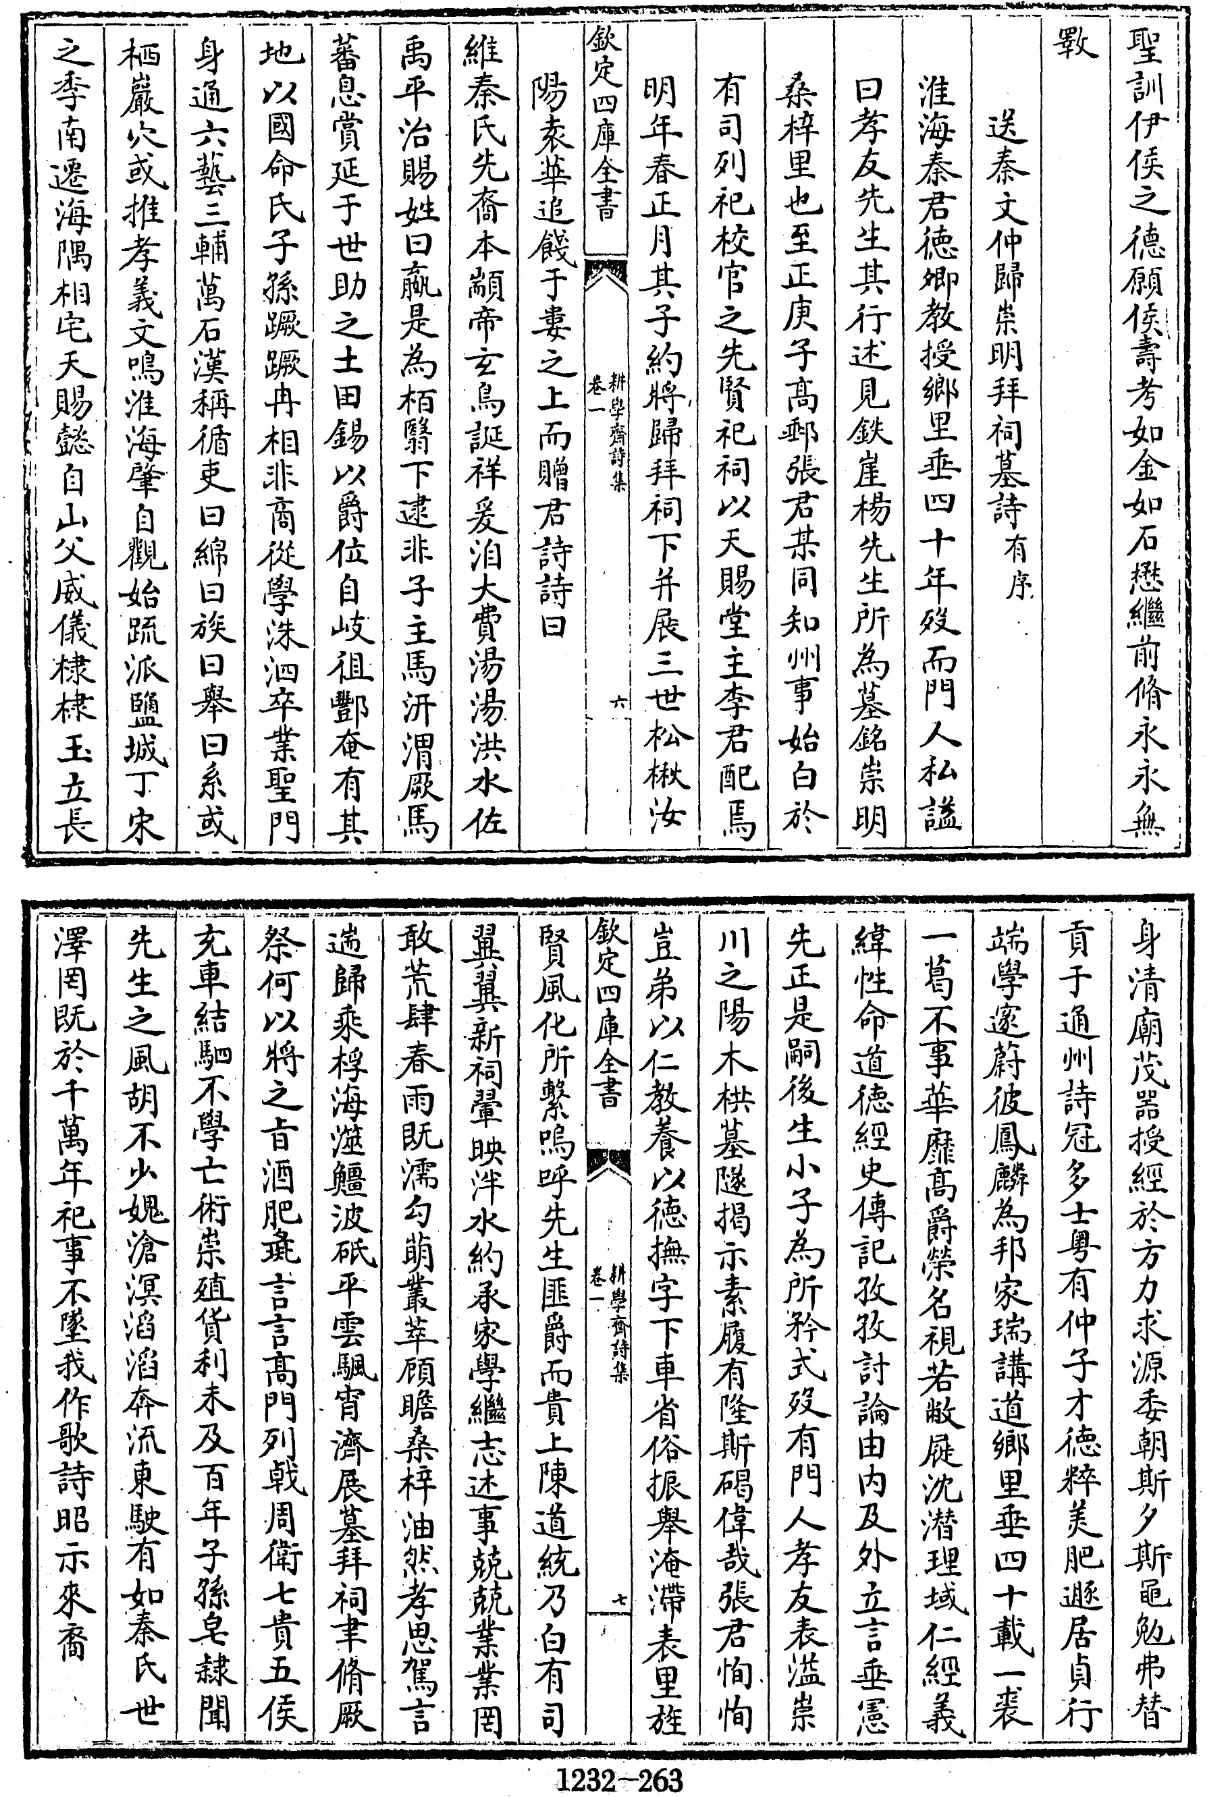 聖訓伊侯之德願侯壽考如金如石懋繼前脩永永無
斁
送秦文仲歸崇明拜祠墓詩有序
淮海秦君德卿教授鄉里垂四十年歿而門人私謚
曰孝友先生其行述見鉄崖楊先生所為墓銘崇明
桑梓里也至正庚子髙郵張君某同知州事始白於
有司列祀校官之先賢祀祠以天賜堂主李君配焉
明年春正月其子約將歸拜祠下并展三世松楸汝
欽定四庫全書
耕學齋詩集
卷一
六
陽袁華追餞于婁之上而贈君詩詩曰
維秦氏先裔本顓帝玄鳥誕祥爰洎大費湯湯洪水佐
禹平治賜姓曰嬴是為栢翳下逮非子主馬汧渭厥馬
蕃息賞延于世助之土田錫以爵位自岐徂酆奄有其
地以國命氏子孫蹶蹶冉相非商從學洙泗卒業聖門
身通六藝三輔萬石漢稱循吏曰綿曰族曰舉曰系或
栖巖穴或推孝義文鳴淮海肇自觀始疏派鹽城丁宋
之季南遷海隅相宅天賜懿自山父威儀棣棣玉立長
身清廟茂噐授經於方力求源委朝斯夕斯黽勉弗替
貢于通州詩冠多士粤有仲子才德粹美肥遯居貞行
端學邃蔚彼鳳麟為邦家瑞講道鄉里垂四十載一裘
一葛不事華靡髙爵榮名視若敝屣沈潜理域仁經義
緯性命道德經史傳記孜孜討論由内及外立言垂憲
先正是嗣後生小子為所矜式歿有門人孝友表謚崇
川之陽木栱墓隧揭示素履有隆斯碣偉哉張君恂恂
豈弟以仁教養以德撫字下車省俗振舉淹滯表里旌
欽定四庫全書
耕學齋詩集
卷一
七
賢風化所繫嗚呼先生匪爵而貴上陳道統乃白有司
翼翼新祠翬映泮水約承家學繼志述事兢兢業業罔
敢荒肆春雨既濡勾萌叢萃顧瞻桑梓油然孝思駕言
遄歸乘桴海澨鱷波砥平雲颿宵濟展墓拜祠聿脩厥
祭何以將之㫖酒肥彘言言髙門列戟周衛七貴五侯
充車結駟不學亡術崇殖貨利未及百年子孫皂隸聞
先生之風胡不少媿滄溟滔滔奔流東駛有如秦氏世
澤罔既於千萬年祀事不墜我作歌詩昭示來裔
1232-263